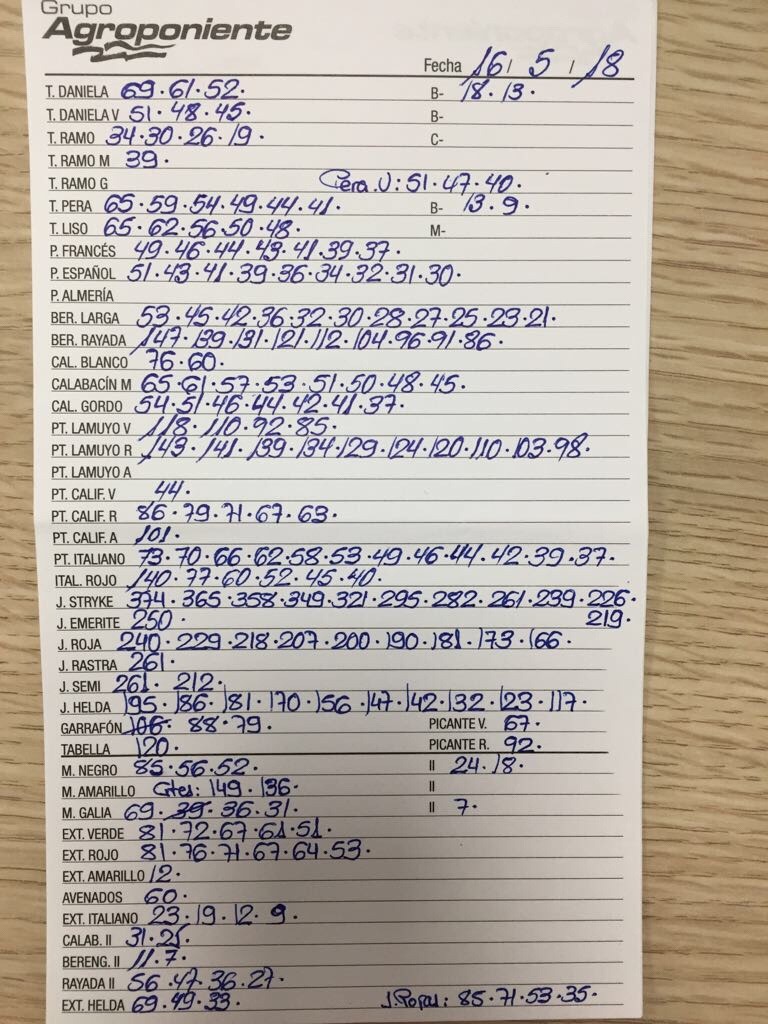 Grupo
Agroponiente
Fecha 16 / 5 / 18
T. DANELA 69·61·52· B- 18·13·
T. DANIELA V 51·48·45· B-
T. RAMO 34·30·26·19· C-
T. RAMO M 39·
T. RAMO G Pera.V: 51·47·40·
T. PERA 65·59·54·49·44·41· B- 13·9·
T. LISO 65·62·56·50·48· M-
P. FRANCÉS 49·46·44·43·41·39·37·
P. ESPAÑOL 51·43·41·39·36·34·32·31·30·
P. ALMERÍA
BER. LARGA 53·45·42·36·32·30·28·27·25·23·21·
BER. RAYADA 147·139·131·121·112·104·96·91·86·
CAL. BLANCO 76·60·
CALABACÍN M 65·61·57·53·51·50·48·45·
CAL. GORDO 54·51·46·44·42·41·37·
PT. LAMUYO V 118·110·92·85·
PT. LAMUYO R 143·141·139·134·129·124·120·110·103·98·
PT. LAMUYO A
PT. CALIF. V 44·
PT. CALIF. R 86·79·71·67·63·
PT. CALIF. A 101·
PT. ITALIANO 73·70·66·62·58·53·49·46·44·42·39·37·
ITAL. ROJO 140·77·60·52·45·40·
J. STRYKE 374·365·358·349·321·295·282·261·239·226·
J. EMERITE 250· 219·
J. ROJA 240·229·218·207·200·190·181·173·166·
J. RASTRA 261·
J. SEMI 261·212·
J. HELDA 195·186·181·170·156·147·142·132·123·117·
GARRAFÓN 106· 88·79· PICANTE V. 67·
TABELLA 120· PICANTE R. 92·
M. NEGRO 85·56·52· II 24·18·
M. AMARILLO Gtes: 149·136· II
M. GALIA 69·39·36·31· II 7·
EXT. VERDE 81·72·67·61·51·
EXT. ROJO 81·76·71·67·64·53·
EXT. AMARILLO 12·
AVENADOS 60·
EXT. ITALIANO 23·19·12·9·
CALAB. II 31·25·
BERENG. II 11·7·
RAYADA II 56·47·36·27·
EXT. HELDA 69·49·33· J. : 85·71·53·35·